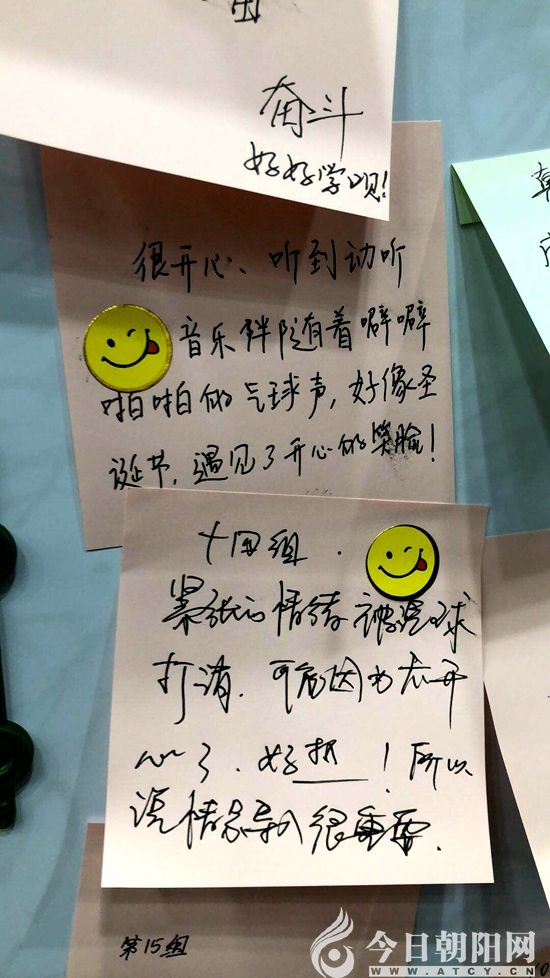 奋斗
好好学呗!
很开心、听到动听
音乐伴随着噼噼
啪啪的气球声，好像圣
诞节，遇见了开心的笑脸！
十四组.
紧张的情绪被气球
打消.可能因为太开
心了.好热！所以
说情景导入很重要.
第15组
今日朝阳网
WWW.ATCY.CN